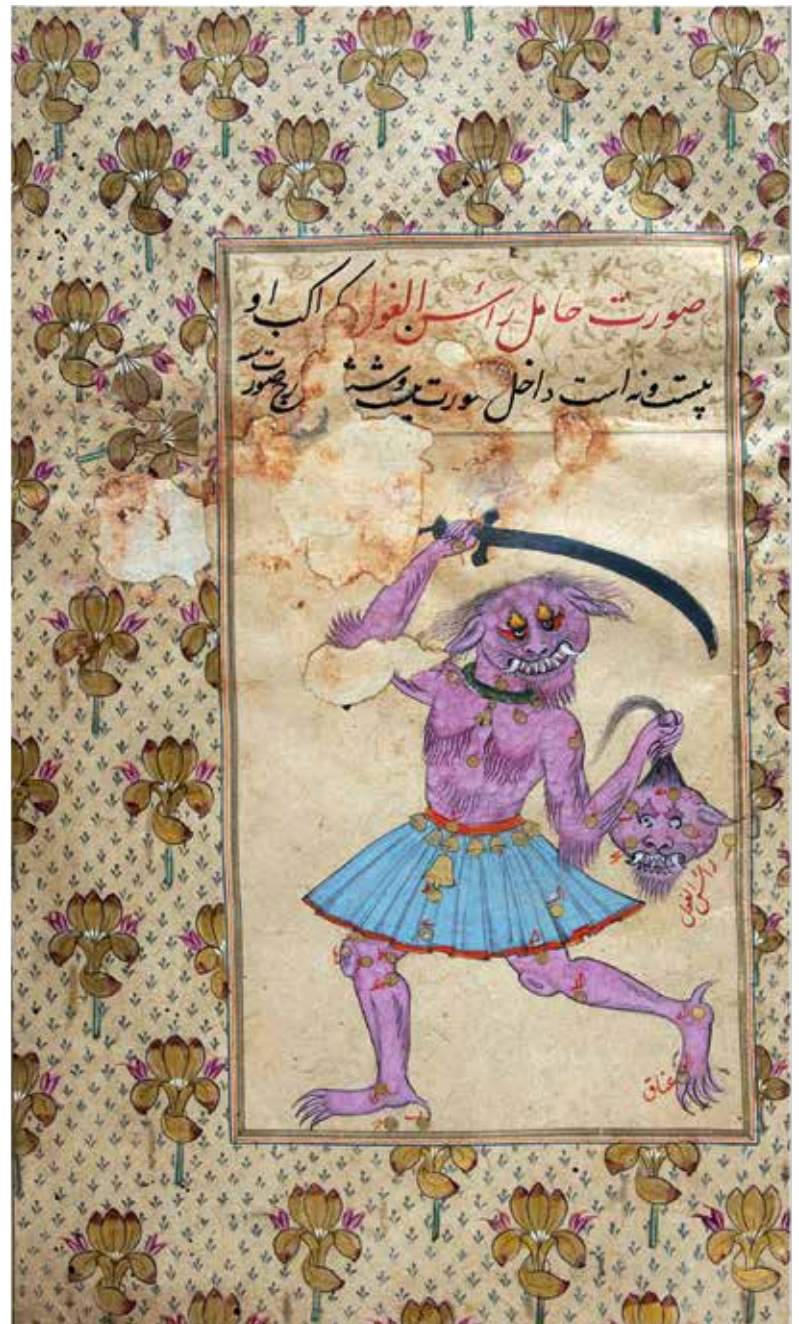 صورت حامل رائس الغول کواکب او
بیست ونه است داخل صورت بیست وشش صورت سه
رائس الغول
عناق